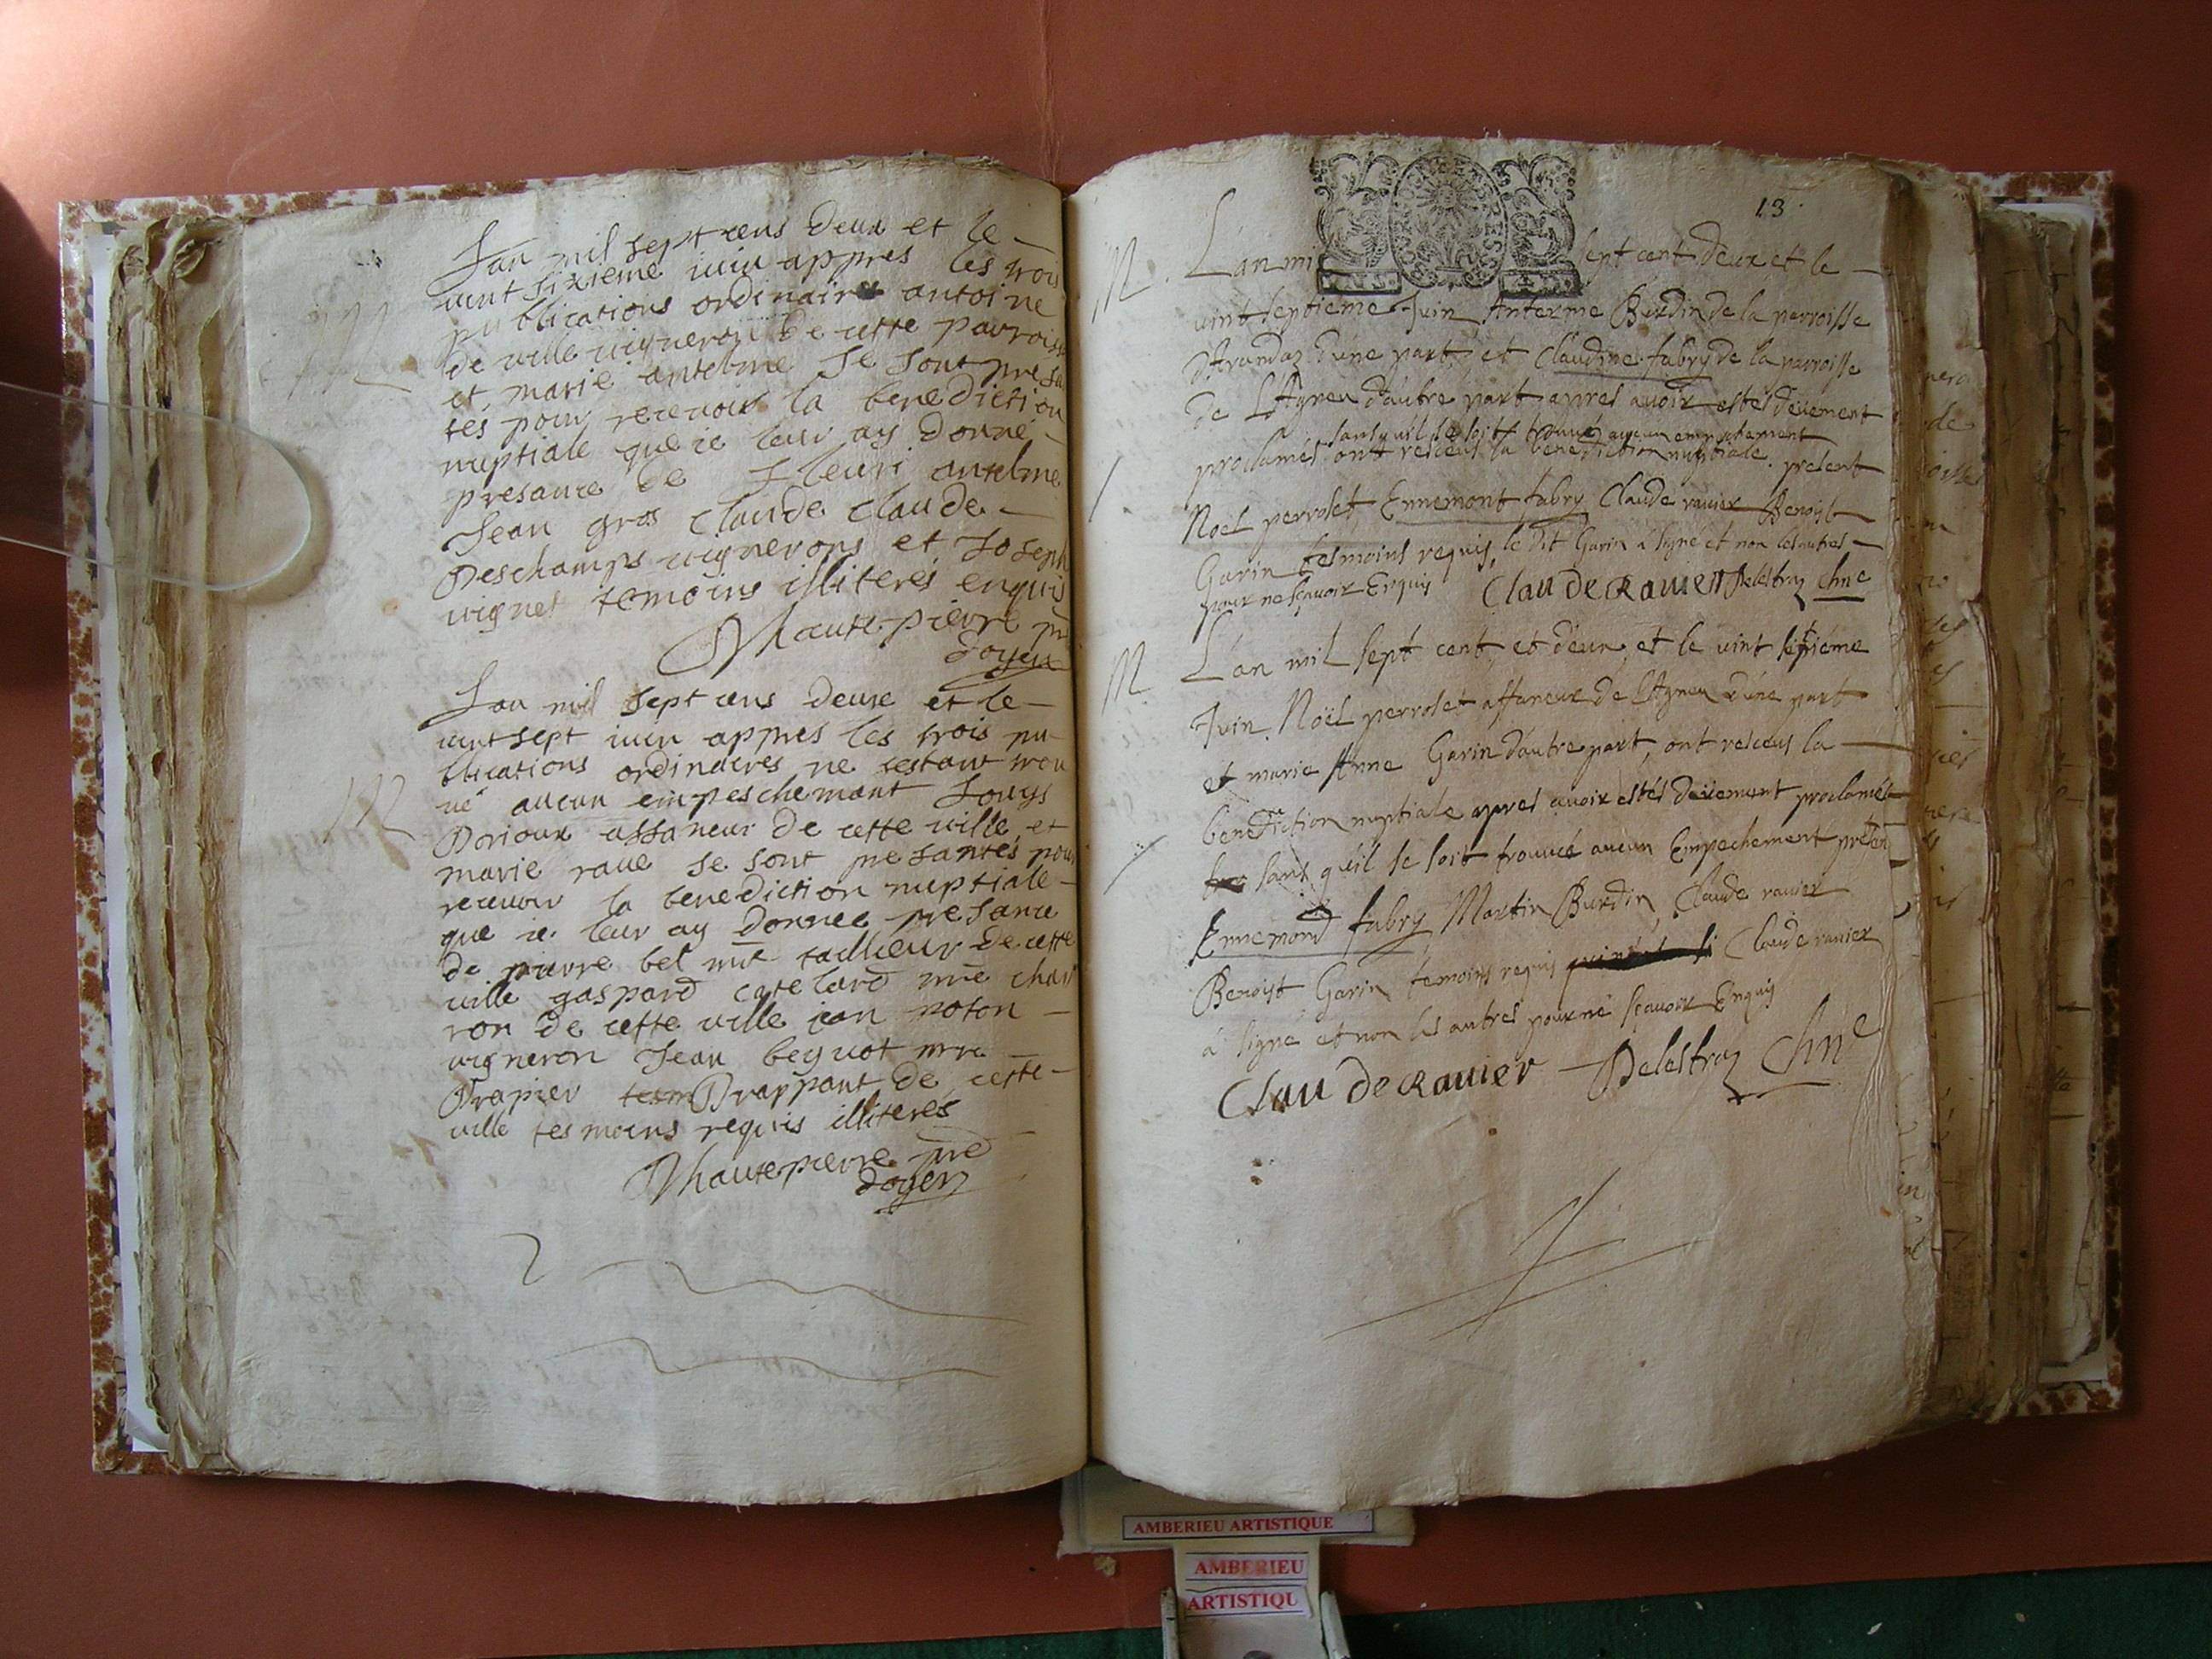 Lan mil sept cens deux et le
vint sixieme iuin appres les trois
publications ordinaires antoine
de ville vigneron de cette parrois
et marie antelme se sont presa
tés pour recevoir la benediction
nuptiale que ie leur ay donné
presance de fleuri antelme
Jean gros claude claude
Deschamps vignerons et Joseph
vignet temoins illiterés enquis
Mhautepierre pre
doyen
M
Lan mil sept cens deux et le
vint sept iuin appres les trois pu
blications ordinaires ne sestant trou
vé aucun empeschemant Louys
Dorioux affaneur de cette ville et
marie raue se sont presantés pour
recevoir la benediction nuptiale
que ie leur ay donnee presance
de pierre bel mre tailleur de cette
ville gaspard catelard mre char
ron de cette ville jean noton
vigneron Jean beguot mre
Drapier tesm Drappant de cette
ville tesmoins requis illiterés
Mhautepierre pre
doyen
13
M. L'an mi sept cent deux et le
vint septieme Juin Anterme Burdin de la parroisse
d'Arandaz d'une part, et Claudine fabry de la parroisse
de L'Agneu d'autre part apres avoir estés deüement
sans quil se soit trouué aucun empechement
proclamés ont resceus la benediction nuptiale. present
Noel perrolet Ennemont fabry Claude ravier Benoist
Garin tesmoins requis, le dit Garin a signé et non les autres
pour ne sçavoir Enquis Claude Ravier Delestraz Chne
M L'an mil sept cent et deux et le vint septieme
Juin Noël perrolet affaneur de L'Agneu d'une part
et marie Anne Garin d'autre part, ont resceus la
benediction nuptiale apres avoir estés deüement proclamés
sans qu'il se soit trouvé aucun Empechement presen
Ennemond fabry Martin Burdin, Claude ravier
Benoist Garin temoins requis Claude ravier
à signé et non les autres pour ne sçavoir Enquis
Claude Ravier Delestraz Chne
AMBERIEU ARTISTIQUE
AMBERIEU
ARTISTIQU